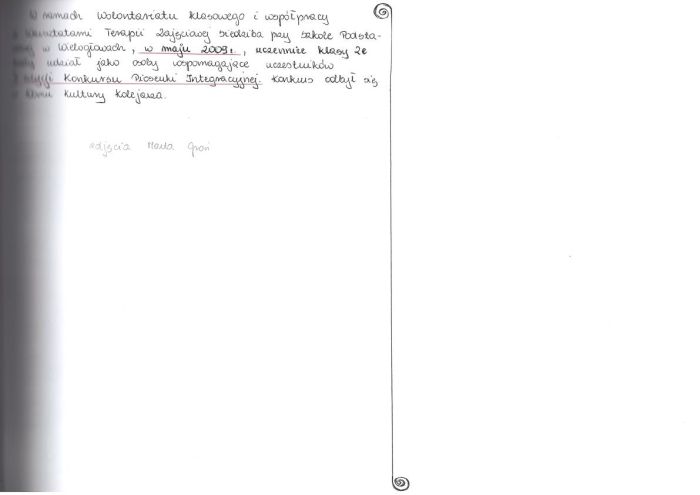 W ramach Wolontariatu klasowego i współpracy
z Warsztatami Terapii Zajęciowej siedziba przy Szkole Podsta-
wej w Wielogłowach, w maju 2009 r., uczennice klasy 2e
udział jako osoby wspomagające uczestników
edycji Konkursu Piosenki Integracyjnej. Konkurs odbył się
w Domu Kultury Kolejarza.
zdjęcia Marta Groń